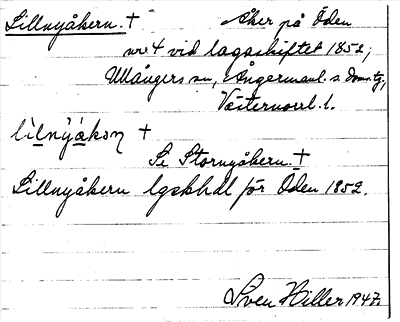 Lillnyåkern. † Åker på Öden
nr 4 vid lagaskiftet 1852;
Ullångers sn, Ångermanl. s. domsg,
Västernorrl. l.
lìlnyákɔn †
Se Stornyåkern. †
Lillnyåkern lgskhdl för Öden 1852.
Sven Hiller 1947.